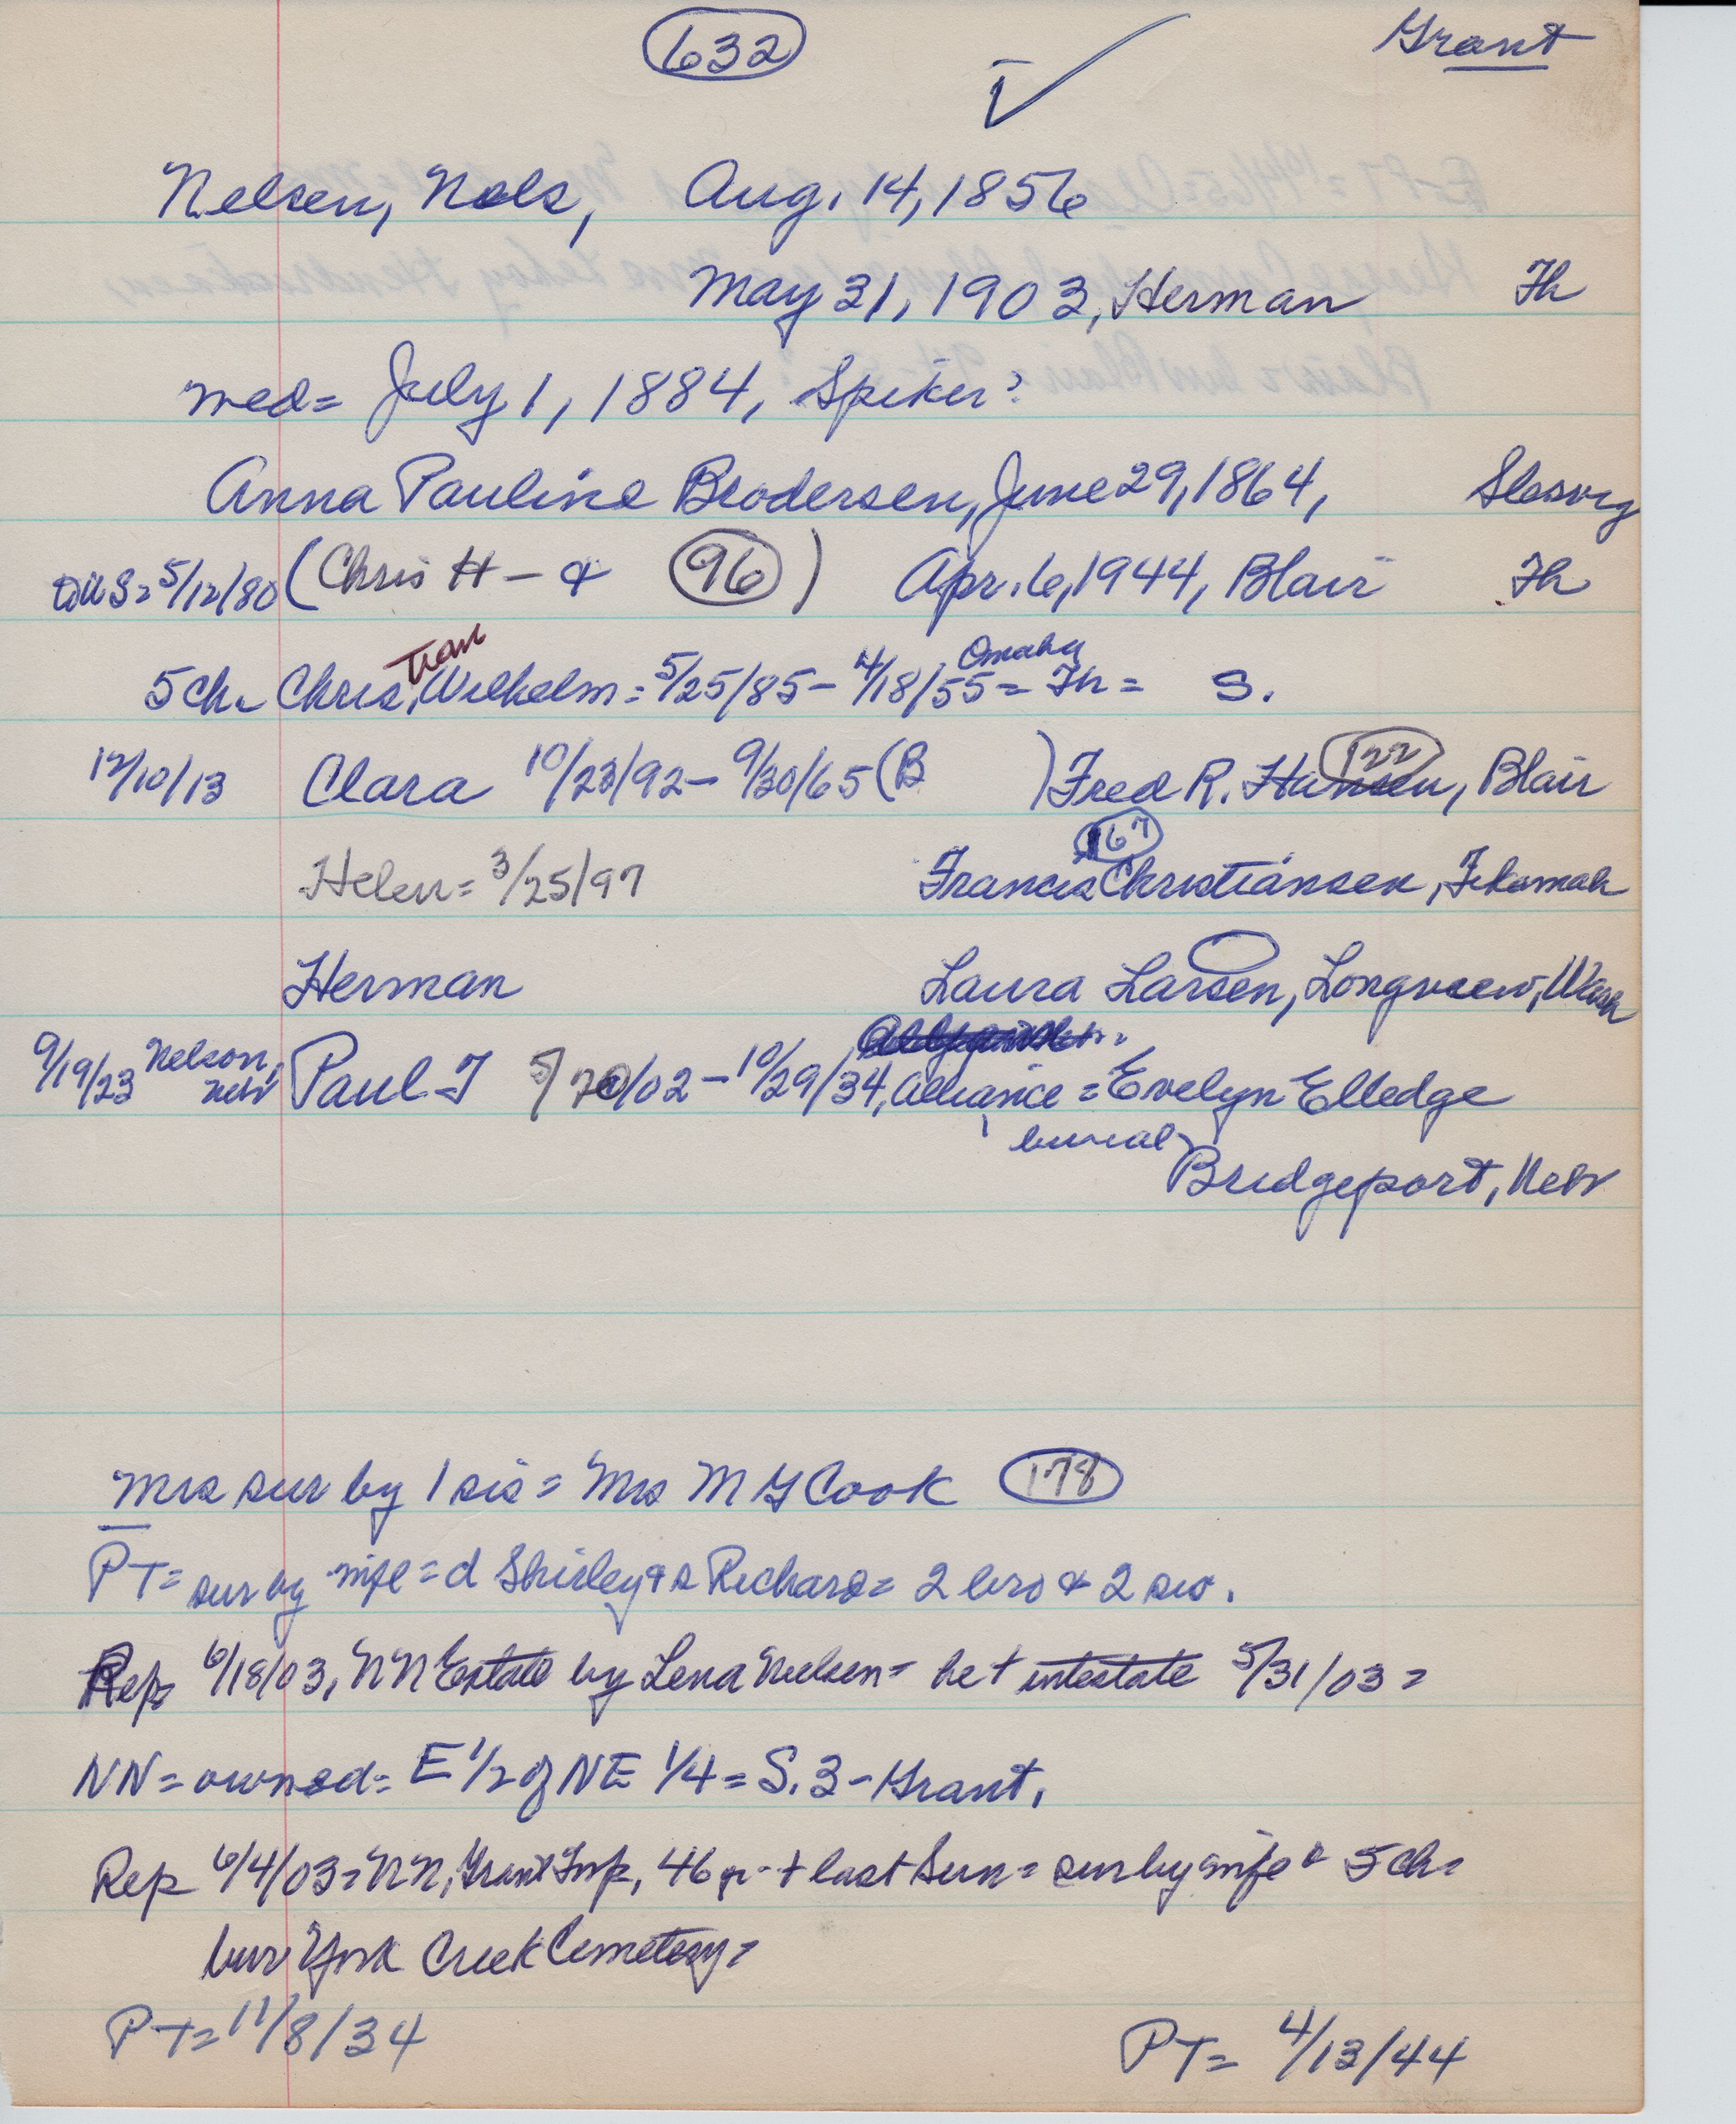 632
Grant
Nelsen, Nels, Aug. 14, 1856
May 31, 1903, Herman Fh
med= July 1, 1884, Spiker?
Anna Pauline Brodersen, June 29, 1864, Slesvig
5/12/80 (Chris H - & 96) Apr. 6, 1944, Blair Fh
tian Omaha
5 ch= Chris, Wilhelm = 5/25/85 - 4/18/55 = Fh = S.
12/10/13 Clara 10/23/92 - 9/30/65 (B ) Fred R. Hansen, Blair
122
167
Helen = 3/25/97 Francis Christiansen, Tekamah
Herman Laura Larsen, Longview, Wash
9/19/23 Nelson, Nebr Paul T 5/ /02 - 10/29/34, Alliance = Evelyn Elledge
burial
Bridgeport, Nebr
Mrs sur by 1 sis = Mrs M G Cook 178
PT= sur by wife = d Shirley & s Richard = 2 bro & 2 sis.
Rep 6/18/03, NN Estate by Lena Nelsen = he + intestate 5/31/03 =
NN = owned = E 1/2 of NE 1/4 = S. 3 - Grant.
Rep 6/4/03 = NN, Grant Twp, 46 yr - + last Sun = sur by wife & 5 ch =
bur York Creek Cemetery =
PT= 11/8/34 PT= 4/13/44